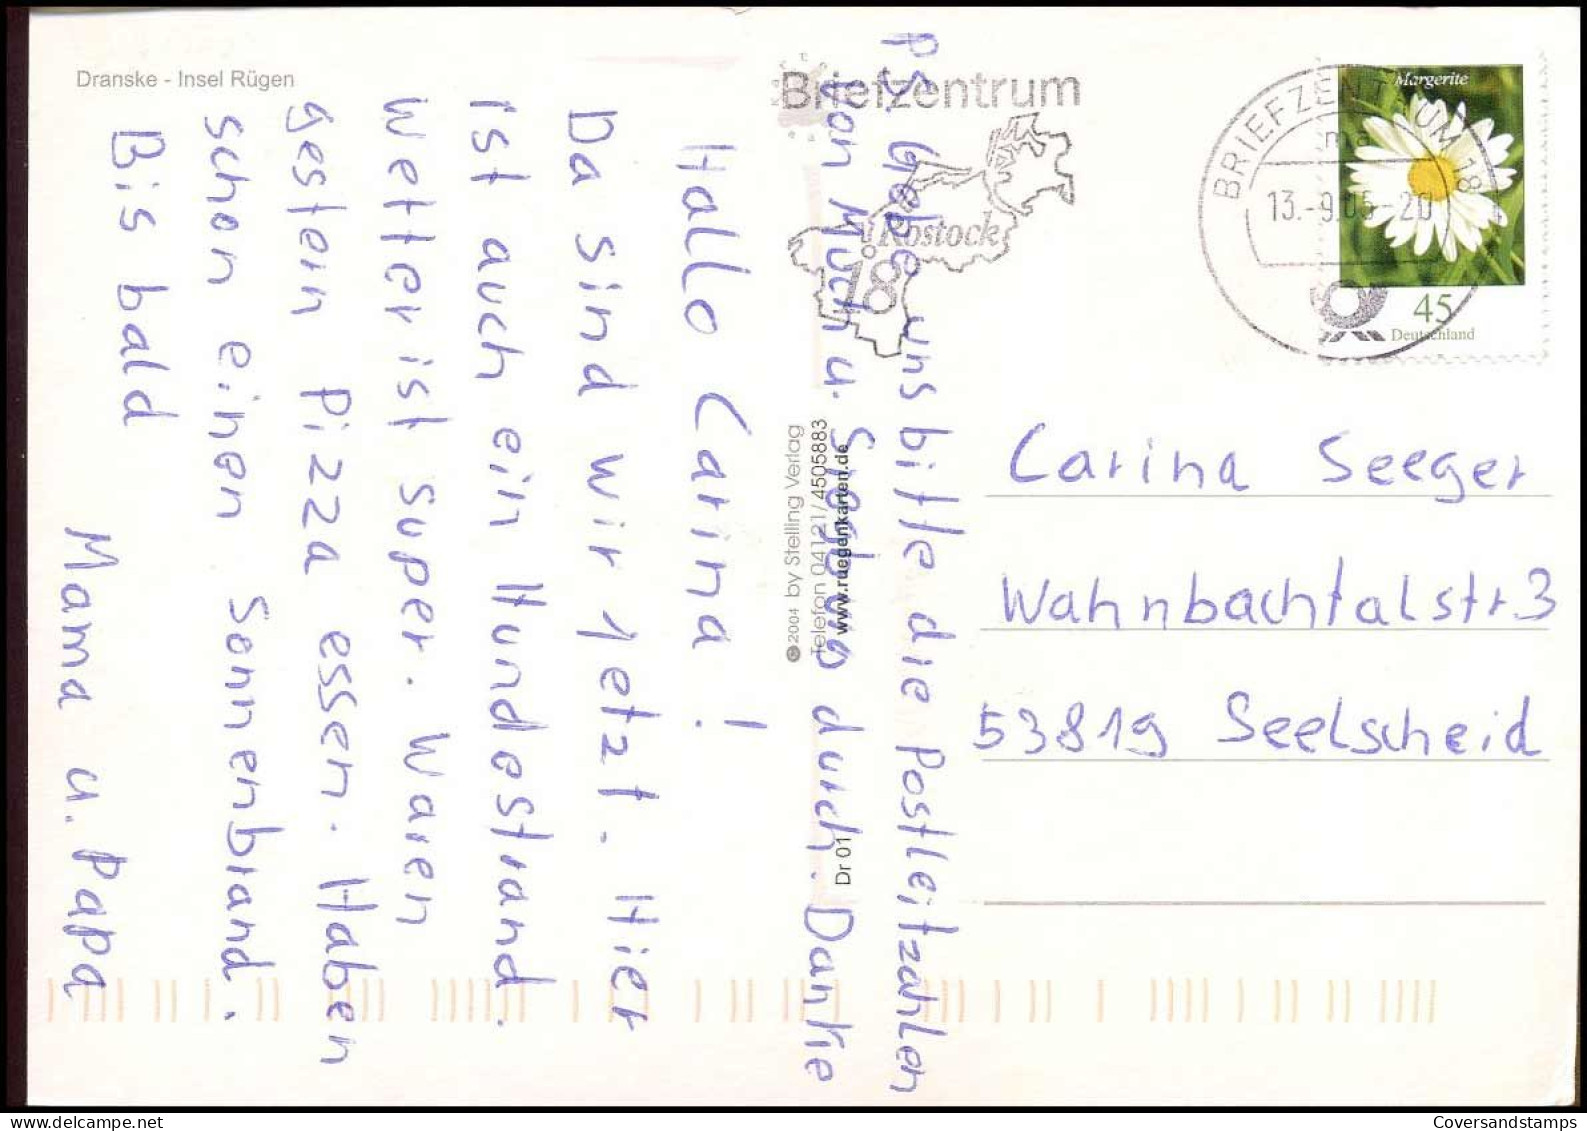 Dranske - Insel Rügen
Hallo Carina!
Da sind wir jetzt. Hier
ist auch ein Hundestrand.
Wetter ist super. Waren
gestern Pizza essen. Haben
schon einen Sonnenbrand.
Bis bald
Mama u. Papa
PS. Gebe uns bitte die Postleitzahlen
von Much u. Siegburg durch. Danke
© 2004 by Stelling Verlag
Telefon 04121/4505883
www.ruegenkarten.de
Dr 01
Briefzentrum
Rostock
18
BRIEFZENTRUM 18
ma
13.-9.05-20
Margerite
45
Deutschland
Carina Seeger
Wahnbachtalstr 3
53819 Seelscheid
Coversandstamps